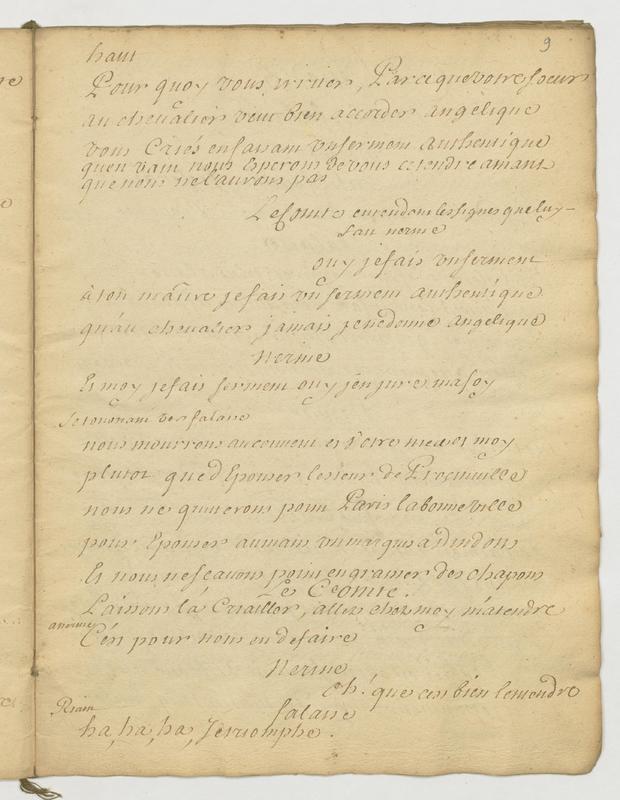 9
haut
Pour quoy vous irriter, Parceque votre soeur
au chevalier veut bien accorder angelique
vous Criés en faisant un serment authentique
qu'en vain nous Esperons de vous ce tendre amant
que nous ne l'aurons pas
Le Comte entendant les signes que luy
fait nerine
ouy je fais un serment
à ton maitre je fais un serment authentique
qu'au chevalier jamais je ne donne angelique
Nerine
Et moy je fais serment ouy j'en jure ma foy
se tournant vers falaise
nous mourrons au couvent et et moy
plutot que d'Epouser le sieur de
nous ne quitterons point Paris la bonne ville
pour Epouser au mans un marquis a dindons
Et nous ne scavons point engraisser des chapons
Le Comte.
Laissons la Criailler, allez chez moy m'atendre
a nerine
C'en pour nous en defaire
Nerine
oh! que c'est bien l'entendre
falaise
Riant
ha, ha, ha, Je triomphe.